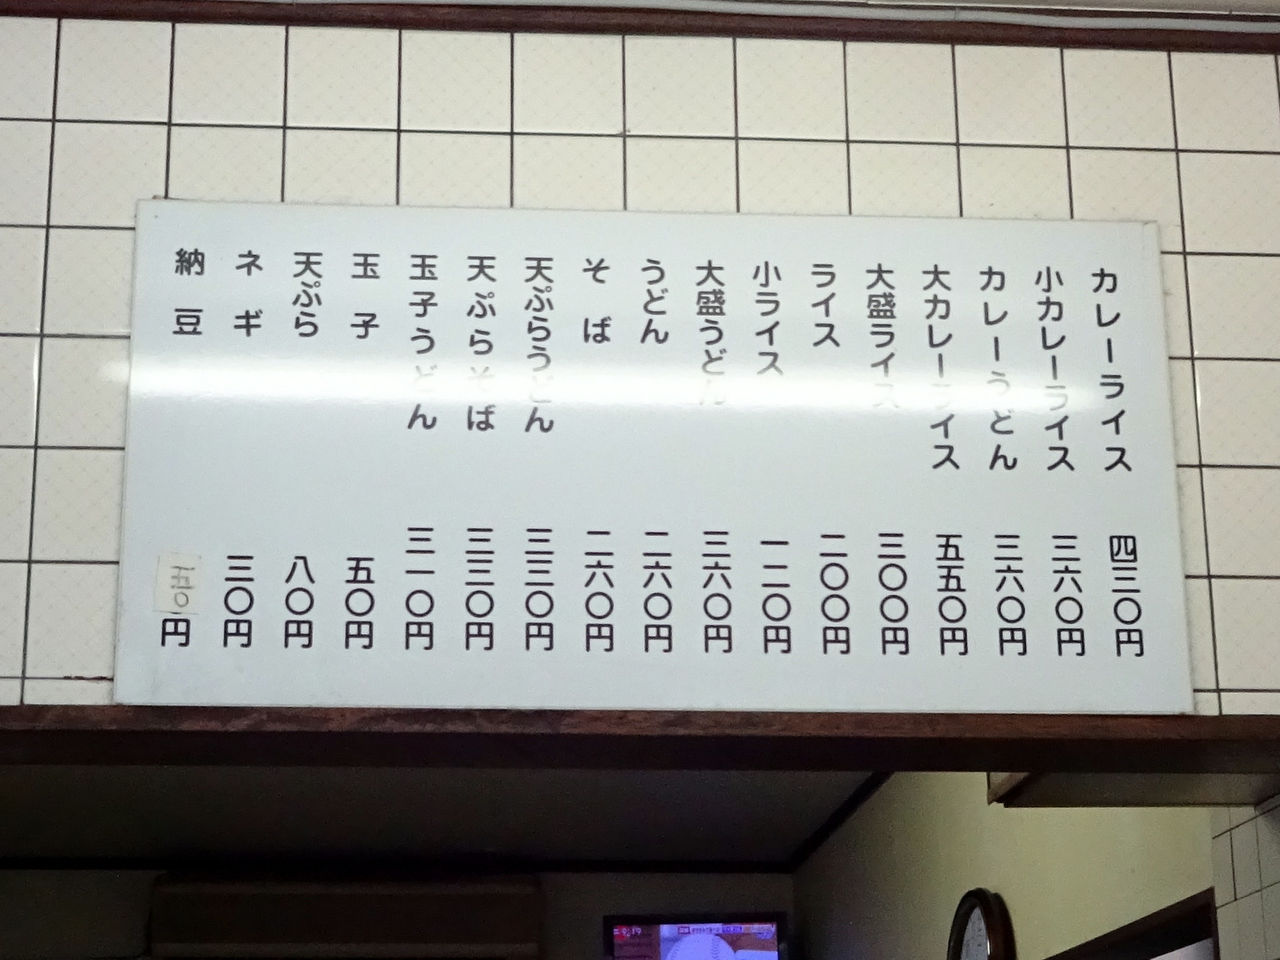 カレーライス 四三〇円
小カレーライス 三六〇円
カレーうどん 三六〇円
大カレーライス 五五〇円
大盛ライス 三〇〇円
ライス 二〇〇円
小ライス 一二〇円
大盛うどん 三六〇円
うどん 二六〇円
そば 二六〇円
天ぷらうどん 三三〇円
天ぷらそば 三三〇円
玉子うどん 三一〇円
玉子 五〇円
天ぷら 八〇円
ネギ 三〇円
納豆 五〇円